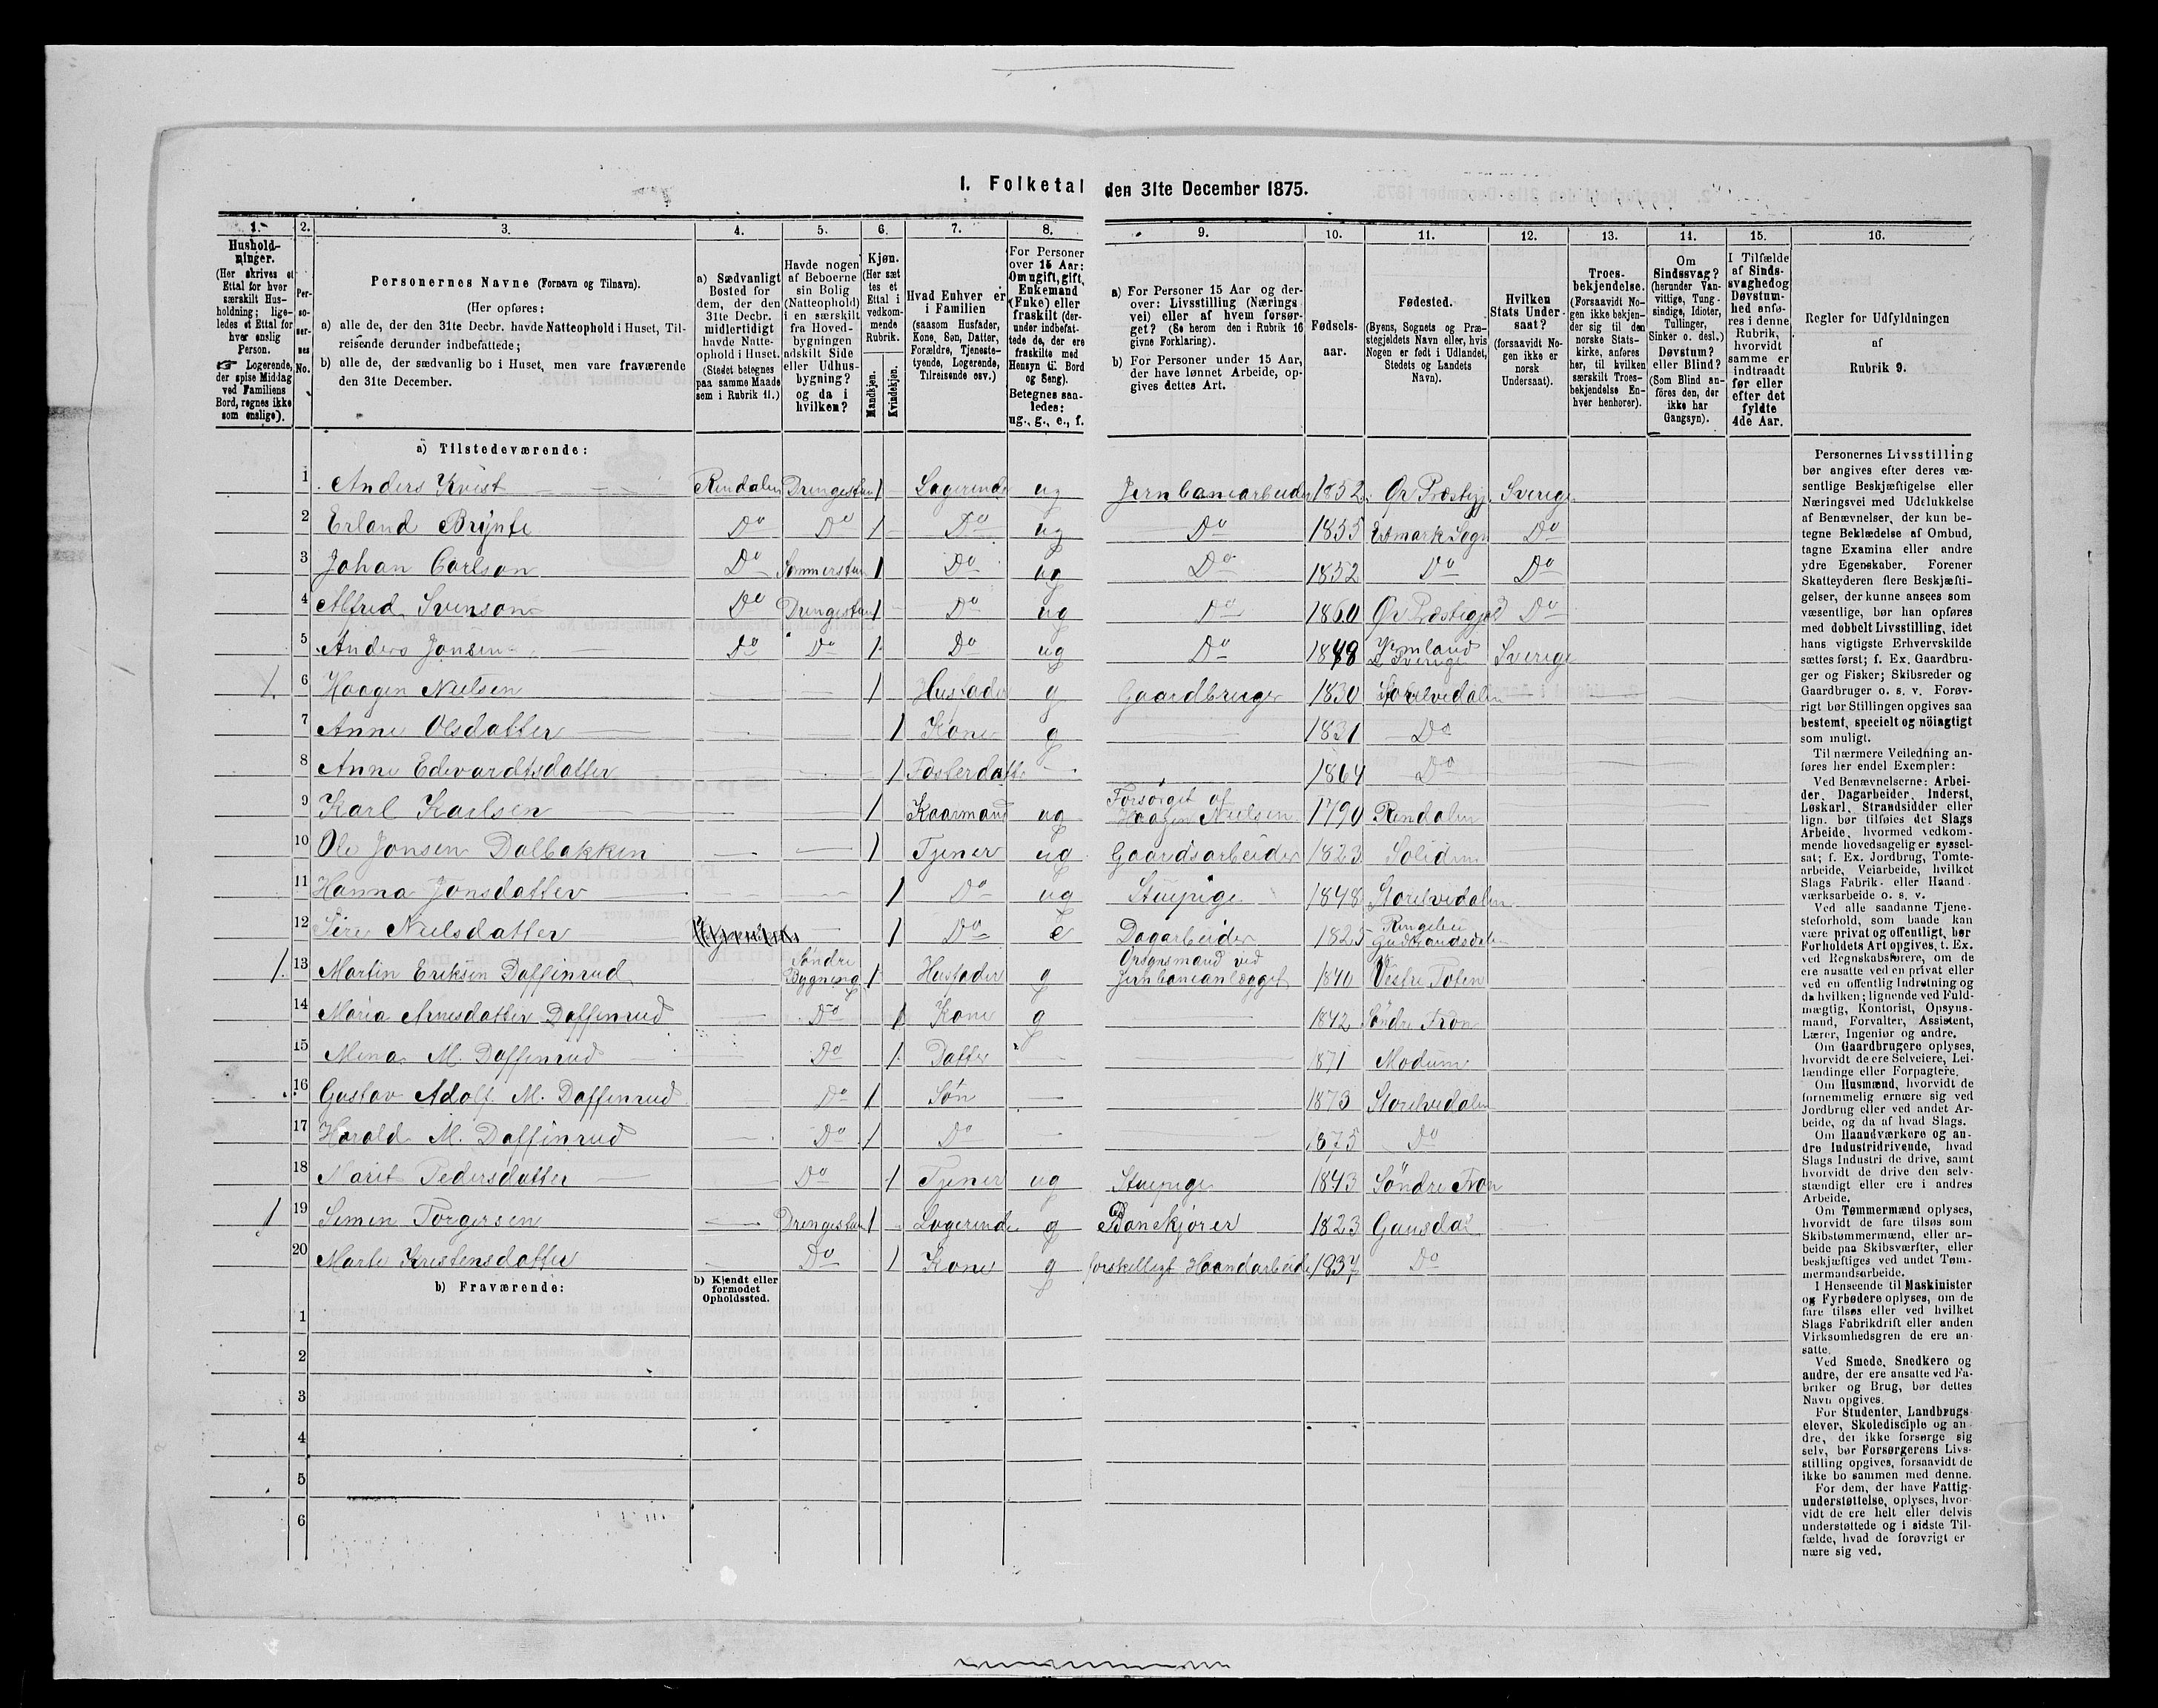 1. Folketal den 31te December 1875.
1. 2. 3. 4. 5. 6. 7. 8. 9. 10. 11. 12. 13. 14. 15. 16.
Hushold-
ninger.
(Her skrives et
Ettal for hver
særskilt Hus-
holdning; lige-
ledes et Ettal for
hver enslig
Person.
☞ Logerende,
der spise Middag
ved Familiens
Bord, regnes ikke
som enslige).
Per-
so-
ner-
nes
No.
Personernes Navne (Fornavn og Tilnavn).
(Her opføres:
a) alle de, der den 31te Decbr. havde Natteophold i Huset, Til-
reisende derunder indbefattede;
b) alle de, der sædvanlig bo i Huset, men vare fraværende
den 31te December.
a) Sædvanligt
Bosted for
dem, der den
31te Decbr.
midlertidigt
havde Natte-
ophold i Huset.
(Stedet betegnes
paa samme Maade
som i Rubrik 11.)
Havde nogen
af Beboerne
sin Bolig
(Natteophold)
i en særskilt
fra Hoved-
bygningen
adskilt Side
eller Udhus-
bygning?
og da i
hvilken?
Kjøn.
(Her sæt
tes et
Ettal i
vedkom-
mende
Rubrik.
Mandkjøn.
Kvindekjøn.
Hvad Enhver er
i Familien
(saasom Husfader,
Kone, Søn, Datter,
Forældre, Tjeneste-
tyende, Logerende,
Tilreisende osv.)
For Personer
over 15 Aar:
Om ugift, gift,
Enkemand
(Enke) eller
fraskilt (der-
under indbefat-
tede de, der ere
fraskilte med
Hensyn til Bord
og Seng).
Betegnes saa-
ledes:
ug., g., e., f.
a) For Personer 15 Aar og der-
over: Livsstilling (Nærings
vei) eller af hvem forsør-
get? (Se herom den i Rubrik 16
givne Forklaring).
b) For Personer under 15 Aar,
der have lønnet Arbeide, op-
gives dettes Art.
Fødsels-
aar.
Fødested.
(Byens, Sognets og Præ-
stegjeldets Navn eller, hvis
Nogen er født i Udlandet,
Stedets og Landets
Navn).
Hvilken
Stats Under-
saat?
(forsaavidt No-
gen ikke er
norsk
Undersaat).
Troes-
bekjendelse.
(Forsaavidt No-
gen ikke bekjen-
der sig til den
norske Stats-
kirke, anføres
her, til hvilken
særskilt Troes-
bekjendelse En-
hver henhører).
Om
Sindssvag?
(herunder Van-
vittige, Tung-
sindige, Idioter,
Tullinger,
Sinker o. desl.)
Døvstum?
eller Blind?
(Som Blind an-
föres den, der
ikke har
Gangsyn).
I Tilfælde
af Sinds-
svaghed og
Døvstum-
hed anfø-
res i denne
Rubrik,
hvorvidt
samme er
indtraadt
før eller
efter det
fyldte
4de Aar.
Regler for Udfyldningen
af
Rubrik 9.
a) Tilstedeværende:
1 Anders Kvist Rendalen Drengestuen 1 Logerende ug Jernbanearbeider 1852 Præstegj. Sverige
2 Erland Do Do 1 Do ug Do 1855 Sogn Do
3 Johan Carlson Do Sommerstuen 1 Do ug Do 1852 Do Do
4 Alfred Svenson Do Drengestuen 1 Do ug Do 1860 Præstegjeld Do
5 Anders Jonsen Do Do 1 Do ug Do 1848 Sverige Sverige
1. 6 Haagen Nielsen 1 Husfader g Gaardbruger 1830 Storelvedalen
7 Anne Olsdatter 1 Kone g 1831 Do
8 Anne Edevardtsdatter 1 Fosterdatter 1864 Do
9 Karl Karlsen 1 Kaarmand ug Forsørget af Haagen Nielsen 1790 Rendalen
10 Ole Jonsen Dalbakken 1 Tjener ug Gaardsarbeider 1823
11 Hanna Jonsdatter 1 Do ug Stuepige 1848 Storelvedalen
12 Siri Nielsdatter 1 Do e Dagarbeider 1825 Ringebu Gudbrandsdalen
1. 13 Martin Eriksen Daffinrud Søndre Bygning 1 Husfader g Opsynsmand ved Jernbaneanlægget 1840 Vestre Toten
14 Maria Arnesdatter Daffinrud Do 1 Kone g 1842 Søndre Fron
15 Mina M. Daffinrud Do 1 Datter 1871 Modum
16 Gustav Adolf M. Daffinrud Do 1 Søn 1873 Storelvedalen
17 Harald M. Daffinrud Do 1 Do 1875 Do
18 Marit Pedersdatter Do 1 Tjener ug Stuepige 1843 Søndre Fron
1 19 Simen Torgersen Drengestuen 1 Logerende g Banekjører 1823 Gausdal
20 Marte Kristensdatter Do 1 Kone g forskelligt Haandarbeide 1837 Do
b) Fraværende:
b) Kjendt eller
formodet
Opholdssted.
1
2
3
4
5
6
Personernes Livsstilling
bør angives efter deres væ-
sentlige Beskjæftigelse eller
Næringsvei med Udelukkelse
af Benævnelser, der kun be-
tegne Beklædelse af Ombud,
tagne Examina eller andre
ydre Egenskaber. Forener
Skatteyderen flere Beskjæfti-
gelser, der kunne ansees som
væsentlige, bør han opføres
med dobbelt Livsstilling, idet
hans vigtigste Erhvervskilde
sættes først; f. Ex. Gaardbru-
ger og Fisker; Skibsreder og
Gaardbruger o. s. v. Forøv-
rigt bør Stillingen opgives saa
bestemt, specielt og nöiagtigt
som muligt.
Til nærmere Veiledning an-
føres her endel Exempler:
Ved Benævnelserne: Arbei-
der, Dagarbeider, Inderst,
Løskarl, Strandsidder eller
lign. bør tilføies det Slags
Arbeide, hvormed vedkom-
mende hovedsagelig er syssel-
sat; f. Ex. Jordbrug, Tomte-
arbeide, Veiarbeide, hvilket
Slags Fabrik- eller Haand-
værksarbeide o. s. v.
Ved alle saadanne Tjene-
steforhold, som baade kan
være privat og offentligt, bør
Forholdets Art opgives, t. Ex.
ved Regnskabsførere, om de
ere ansatte ved en privat eller
ved en offentlig Indretning og
da hvilken; lignende ved Fuld-
mægtig, Kontorist, Opsyns-
mand, Forvalter, Assistent,
Lærer, Ingeniør og andre.
Om Gaardbrugere oplyses,
hvorvidt de ere Selveiere, Lei-
lændinge eller Forpagtere.
Om Husmænd, hvorvidt de
fornemmelig ernære sig ved
Jordbrug eller ved andet Ar-
beide, og da af hvad Slags.
Om Haandværkere og an-
dre Industridrivende, hvad
Slags Industri de drive, samt
hvorvidt de drive den selv-
stændigt eller ere i andres
Arbeide.
Om Tømmermænd oplyses,
hvorvidt de fare tilsøs som
Skibstømmermænd, eller ar-
beide paa Skibsværfter, eller
beskjæftiges ved andet Tøm-
mermandsarbeide.
I Henseende til Maskinister
og Fyrbødere oplyses, om de
fare tilsøs eller ved hvilket
Slags Fabrikdrift eller anden
Virksomhedsgren de ere an-
satte.
Ved Smede, Snedkere og
andre, der ere ansatte ved Fa-
briker og Brug, bør dettes
Navn opgives.
For Studenter, Landbrugs
elever, Skoledisciple og an-
dre, der ikke forsørge sig
selv, bør Forsørgerens Livs-
stilling opgives, forsaavidt de
ikke bo sammen med denne.
For dem, der have Fattig-
understøttelse, oplyses, hvor-
vidt de ere helt eller delvis
understøttede og i sidste Til-
fælde, hvad de forøvrigt er
nære sig ved.